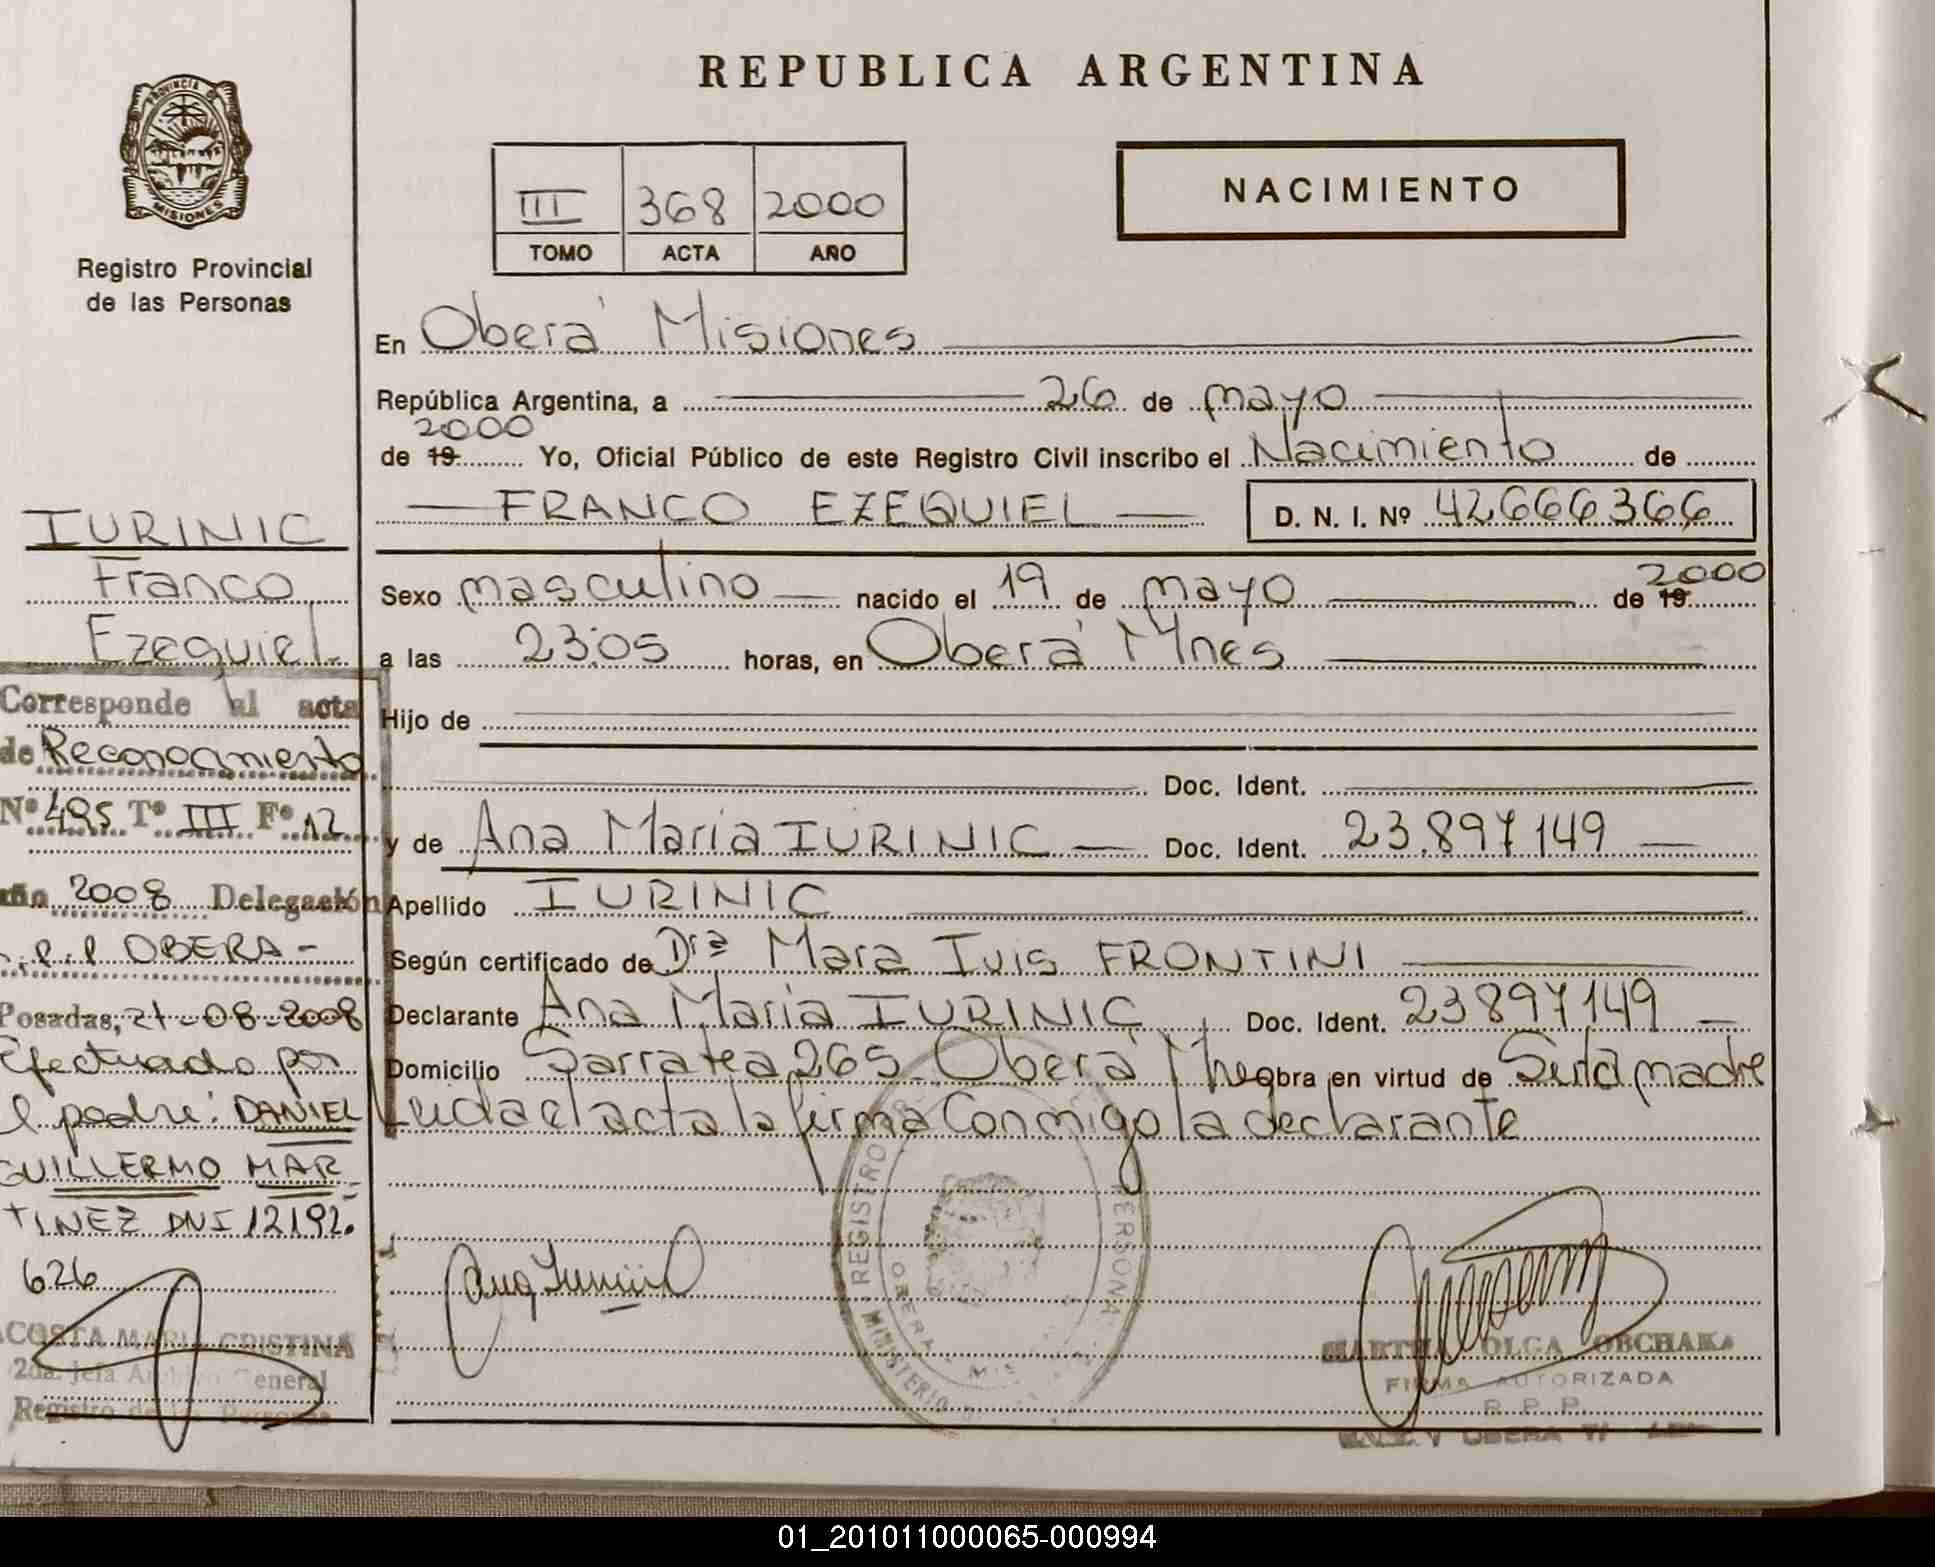 REPUBLICA ARGENTINA
PROVINCIA DE
MISIONES
Registro Provincial
de las Personas
NACIMIENTO
III 368 2000
TOMO ACTA AÑO
En Oberá Misiones
República Argentina, a 26 de mayo
2000
de 19 Yo, Oficial Público de este Registro Civil inscribo el Nacimiento de
FRANCO EZEQUIEL D. N. I. Nº 42666366
Sexo masculino nacido el 19 de mayo de 19 2000
a las 23:05 horas, en Oberá Mnes
Hijo de
Doc. Ident.
y de Ana María IURINIC Doc. Ident. 23.897149
Apellido IURINIC
Según certificado de Drª Mara Iuis FRONTINI
Declarante Ana María IURINIC Doc. Ident. 23897149
Domicilio Sarratea 265 Oberá Mnes obra en virtud de Ser la madre
Leida el acta la firma Conmigo la declarante
IURINIC
Franco
Ezequiel
Corresponde al acta
de Reconocimiento
Nº 495 Tº III Fº 12
año 2008 Delegación
r.p.p OBERA-
Posadas, 21-08-2008
Efectuado por
el padre: DANIEL
GUILLERMO MAR
TINEZ DNI 12192.
626
ACOSTA MARIA CRISTINA
2da. Jefa Archivo General
Registro de las Personas
REGISTRO
PERSONA
OBERA - MIS
MINISTERIO D
MARTHA OLGA OBCHAKA
FIRMA AUTORIZADA
R. P. P.
01_201011000065-000994